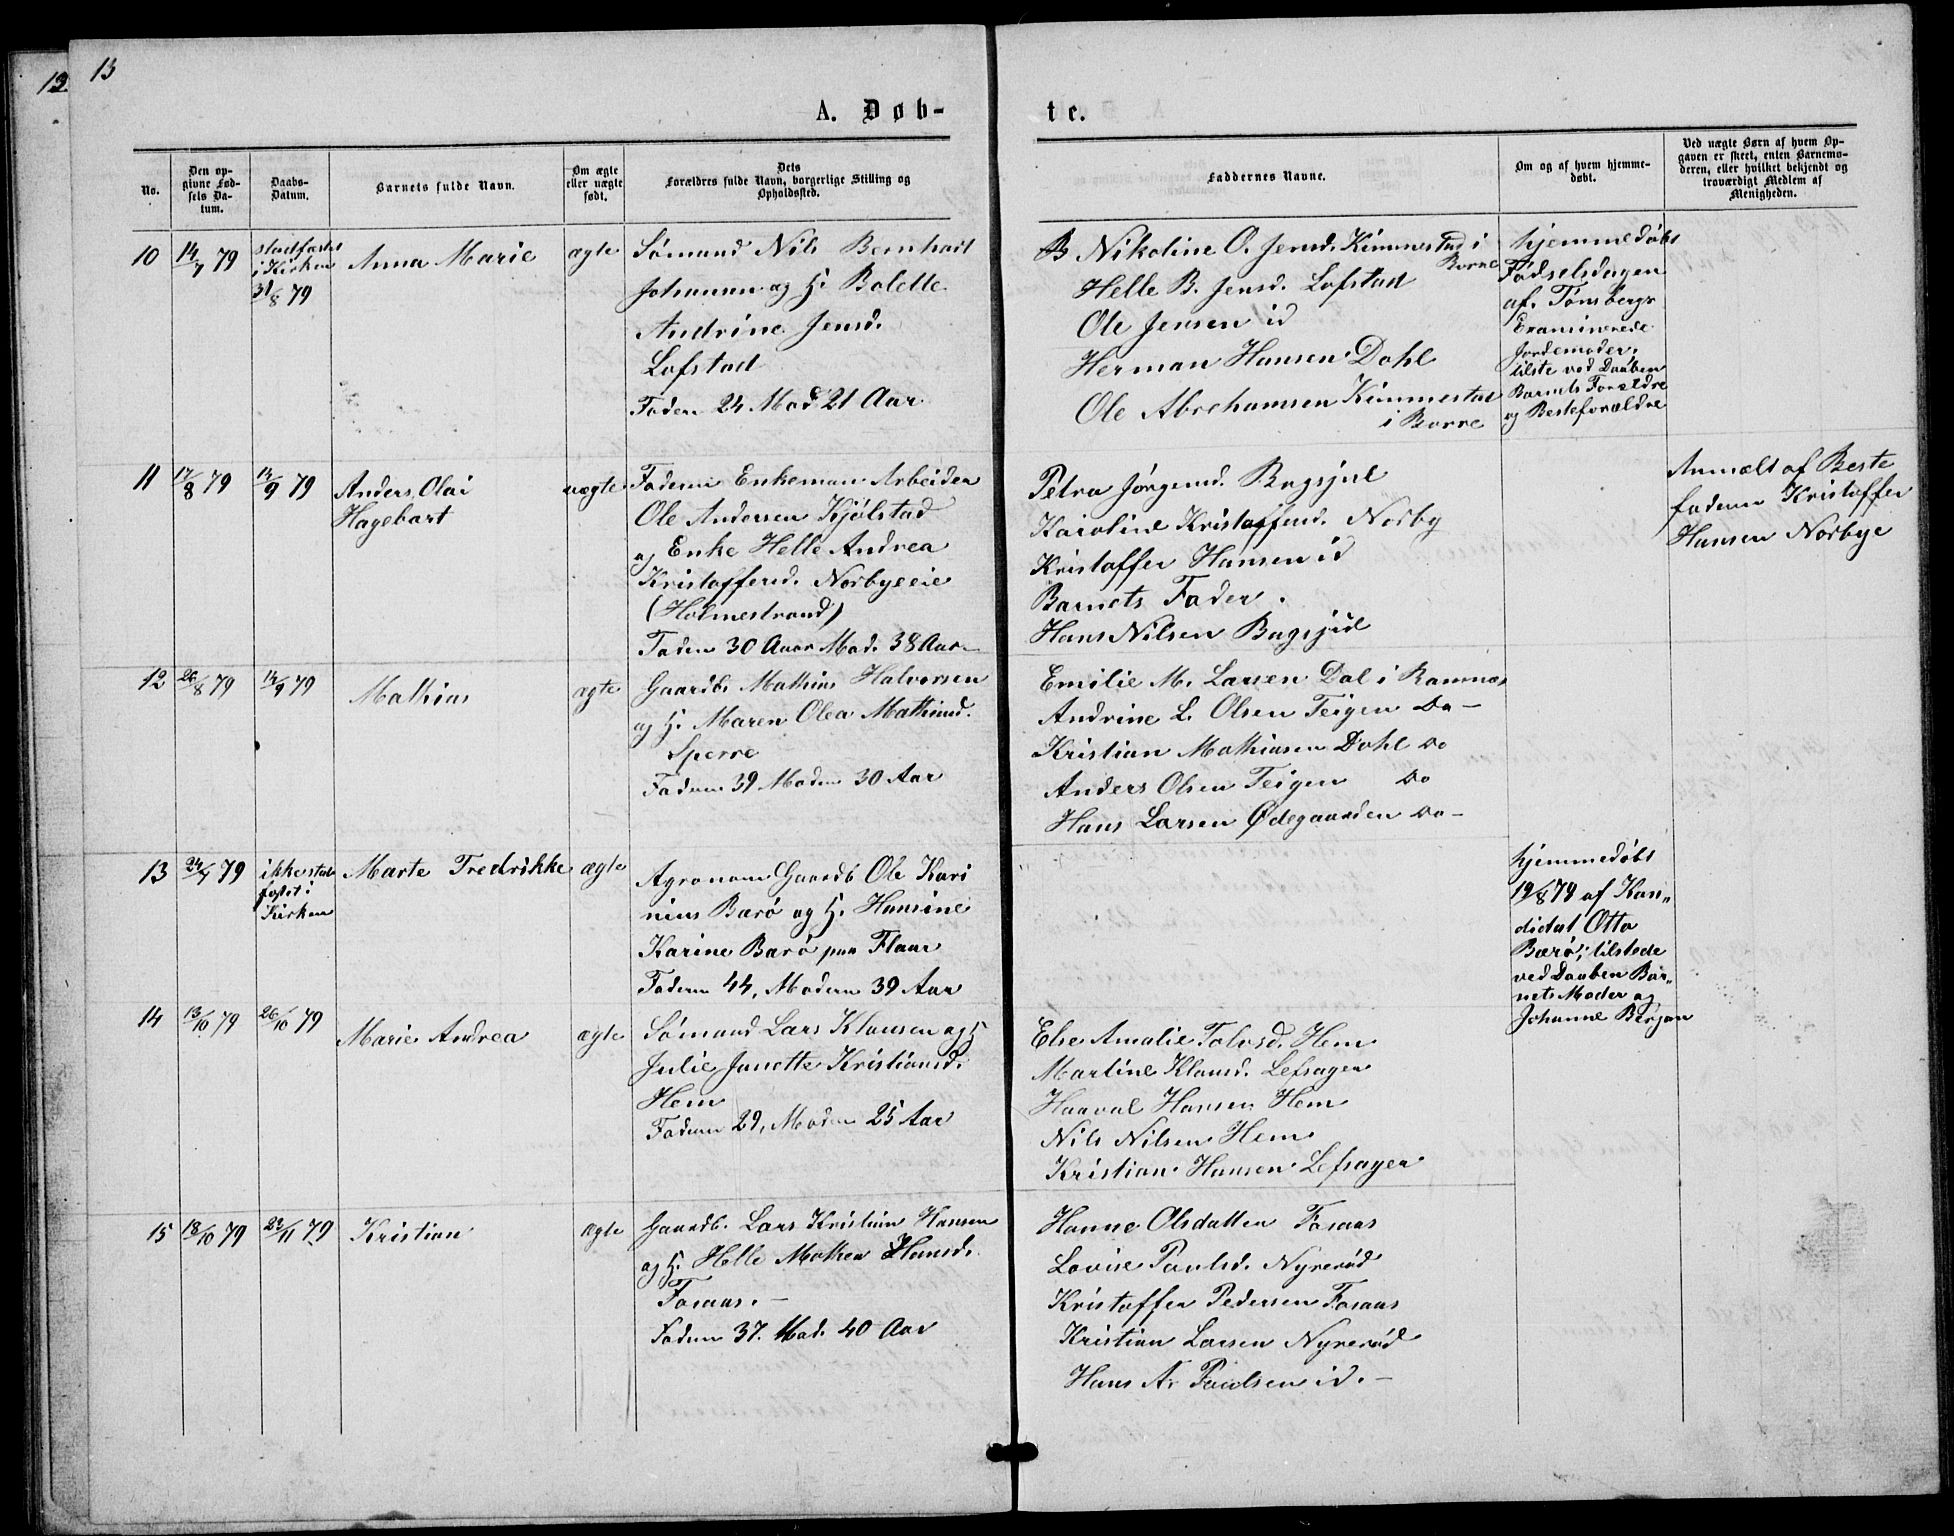 13
12
A. Døb-
te.
No.
Den op-
givne Fød-
sels Da-
tum.
Daabs-
Datum.
Barnets fulde Navn.
Om ægte
eller uægte
født.
Dets
Forældres fulde Navn, borgerlige Stilling og
Opholdssted.
Faddernes Navne.
Om og af hvem hjemme-
døbt.
Ved uægte Børn af hvem Op-
gaven er skeet, enten Barnemo-
deren, eller hvilket bekjendt og
troværdigt Medlem af
Menigheden.
10
14/7 79
stadfæstet
i Kirken
31/8 79
Anna Marie
ægte
Sømand Nils Bernhart
Johansen og H. Bolette
Andrine Jensd.
Lofstad
Faden 24 Mod 21 Aar
B Nikoline O. Jensd. Kimmestad i
Borre
Helle B. Jensd. Lofstad
Ole Jensen id
Herman Hansen Dahl
Ole Abrahamsen Kimmestad
i Borre
hjemmedøbt
Fødselsdagen
af Tønsbergs
Examinerede
Jordemoder.
tilste ved Daaben
Barnets Forældre
og Besteforældre
11
17/8 79
14/9 79
Anders Olai
Hagebart
uægte
Faderen Enkeman Arbeider
Ole Andersen Kjølstad
og Enke Helle Andrea
Kristoffersd. Norbyeeie
(Holmestrand)
Faden 30 Aar Mod. 38 Aar
Petra Jørgensd. Bogsjul
Karoline Kristoffersd. Norby
Kristoffer Hansen id
Barnets Fader.
Hans Nilsen
Anmelt af Beste
faderen Kristoffer
Hansen Norbye
12
26/8 79
14/9 79
Mathias
ægte
Gaardb. Mathias Halvorsen
og H. Maren Olea Mathiasd.
Sperre
Faderen 39 Moderen 30 Aar
Emilie M. Larsen Dal i Ramnæs
Andrine L. Olsen Teigen Do -
Kristian Mathiasen Dahl Do
Anders Olsen Teigen Do
Hans Larsen Ødegaarden Do -
13
24/7 79
ikke stad-
fæstet i
Kirken
Marte Fredrikke
ægte
Agronom Gaardb Ole Kari
nius Barø og H. Hansine
Karine Barø paa Flaar
Faderen 44, Moderen 39 Aar
hjemmedøbt
19/8 79 af Kan„
didat Otto
Barø; tilstede
ved Daaben Bar„
nets Moder og
Johanne Bergan
14
13/10 79
26/10 79
Marie Andrea
ægte
Sømand Lars Klausen og H
Julie Janette Kristiansd.
Hem
Faderen 29, Moderen 25 Aar
Else Amalie Tolvsd. Hem
Martine Klausd. Lefsager
Haaval Hansen Hem
Nils Nilsen Hem
Kristian Hansen Lefsager
15
18/10 79
23/11 79
Kristian
ægte
Gaardb. Lars Kristian Hansen
og H. Helle Mathea Hansd.
Foraas. -
Faderen 37. Mod. 40 Aar
Hanne Olsdatter Foraas
Lovise Paulsd. Nyrerød
Kristoffer Pedersen Foraas
Kristian Larsen Nyrerød
Hans A. Paulsen id. -